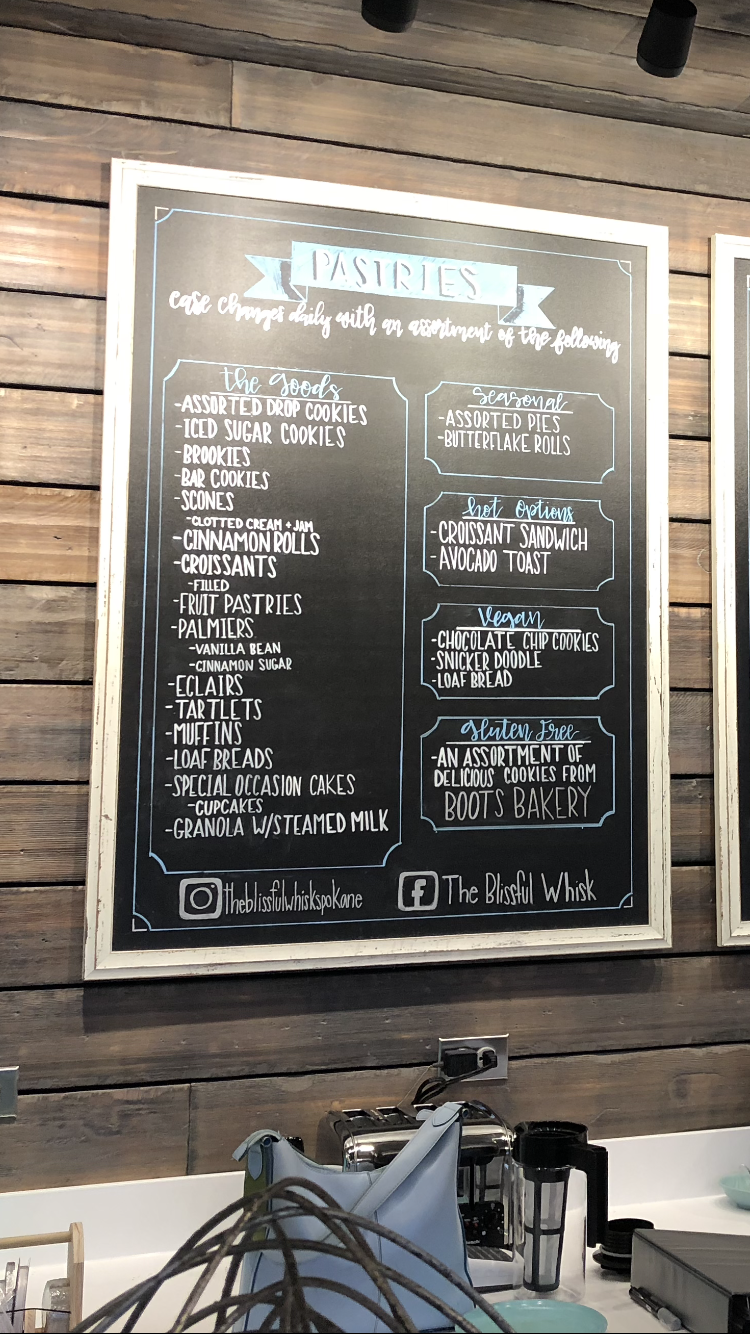 PASTRIES
case changes daily with an assortment of the following
the goods
-ASSORTED DROP COOKIES
-ICED SUGAR COOKIES
-BROOKIES
-BAR COOKIES
-SCONES
-CLOTTED CREAM + JAM
-CINNAMON ROLLS
-CROISSANTS
-FILLED
-FRUIT PASTRIES
-PALMIERS
-VANILLA BEAN
-CINNAMON SUGAR
-ECLAIRS
-TARTLETS
-MUFFINS
-LOAF BREADS
-SPECIAL OCCASION CAKES
-CUPCAKES
-GRANOLA W/STEAMED MILK
seasonal
-ASSORTED PIES
-BUTTERFLAKE ROLLS
hot options
-CROISSANT SANDWICH
-AVOCADO TOAST
Vegan
-CHOCOLATE CHIP COOKIES
-SNICKER DOODLE
-LOAF BREAD
gluten free
-AN ASSORTMENT OF
DELICIOUS COOKIES FROM
BOOTS BAKERY
theblissfulwhiskspokane
The Blissful Whisk